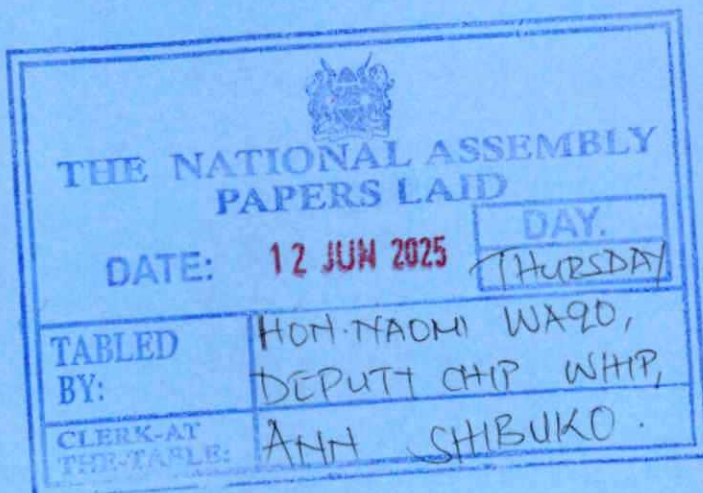 THE NATIONAL ASSEMBLY
PAPERS LAID
DATE: 12 JUN 2025
DAY.
THURSDAY
TABLED BY:
HON. NAOMI WAQO,
DEPUTY CHIP WHIP,
CLERK-AT THE-TABLE:
ANN SHIBUKO.